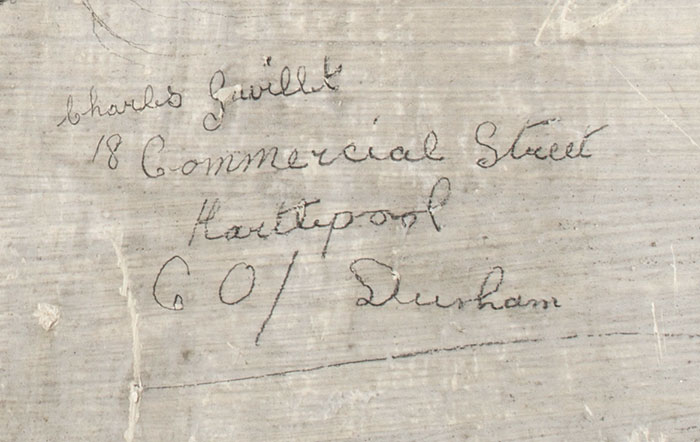 Charles
18 Commercial Street
Harttlepool
C O/ Durham